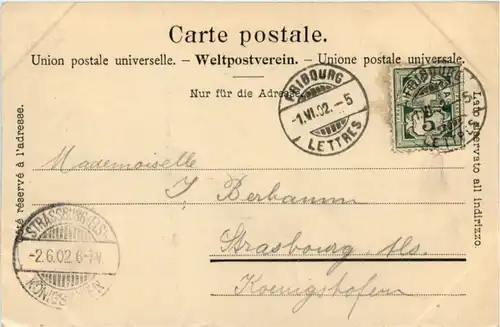 Carte postale.
Union postale universelle. – Weltpostverein. – Unione postale universale.
Nur für die Adresse.
côté réservé à l'adresse.
Lato riservato all indirizzo.
FRIBOURG
-1.VI.02.-5
LETTRES
FRIBOURG
5
LETTRES
Mademoiselle
J. Berbaum
Strasbourg Als.
Koenigshofen
STRASSBURG (ELS)
-2.6.02.6-7V.
KÖNIGSHOFEN